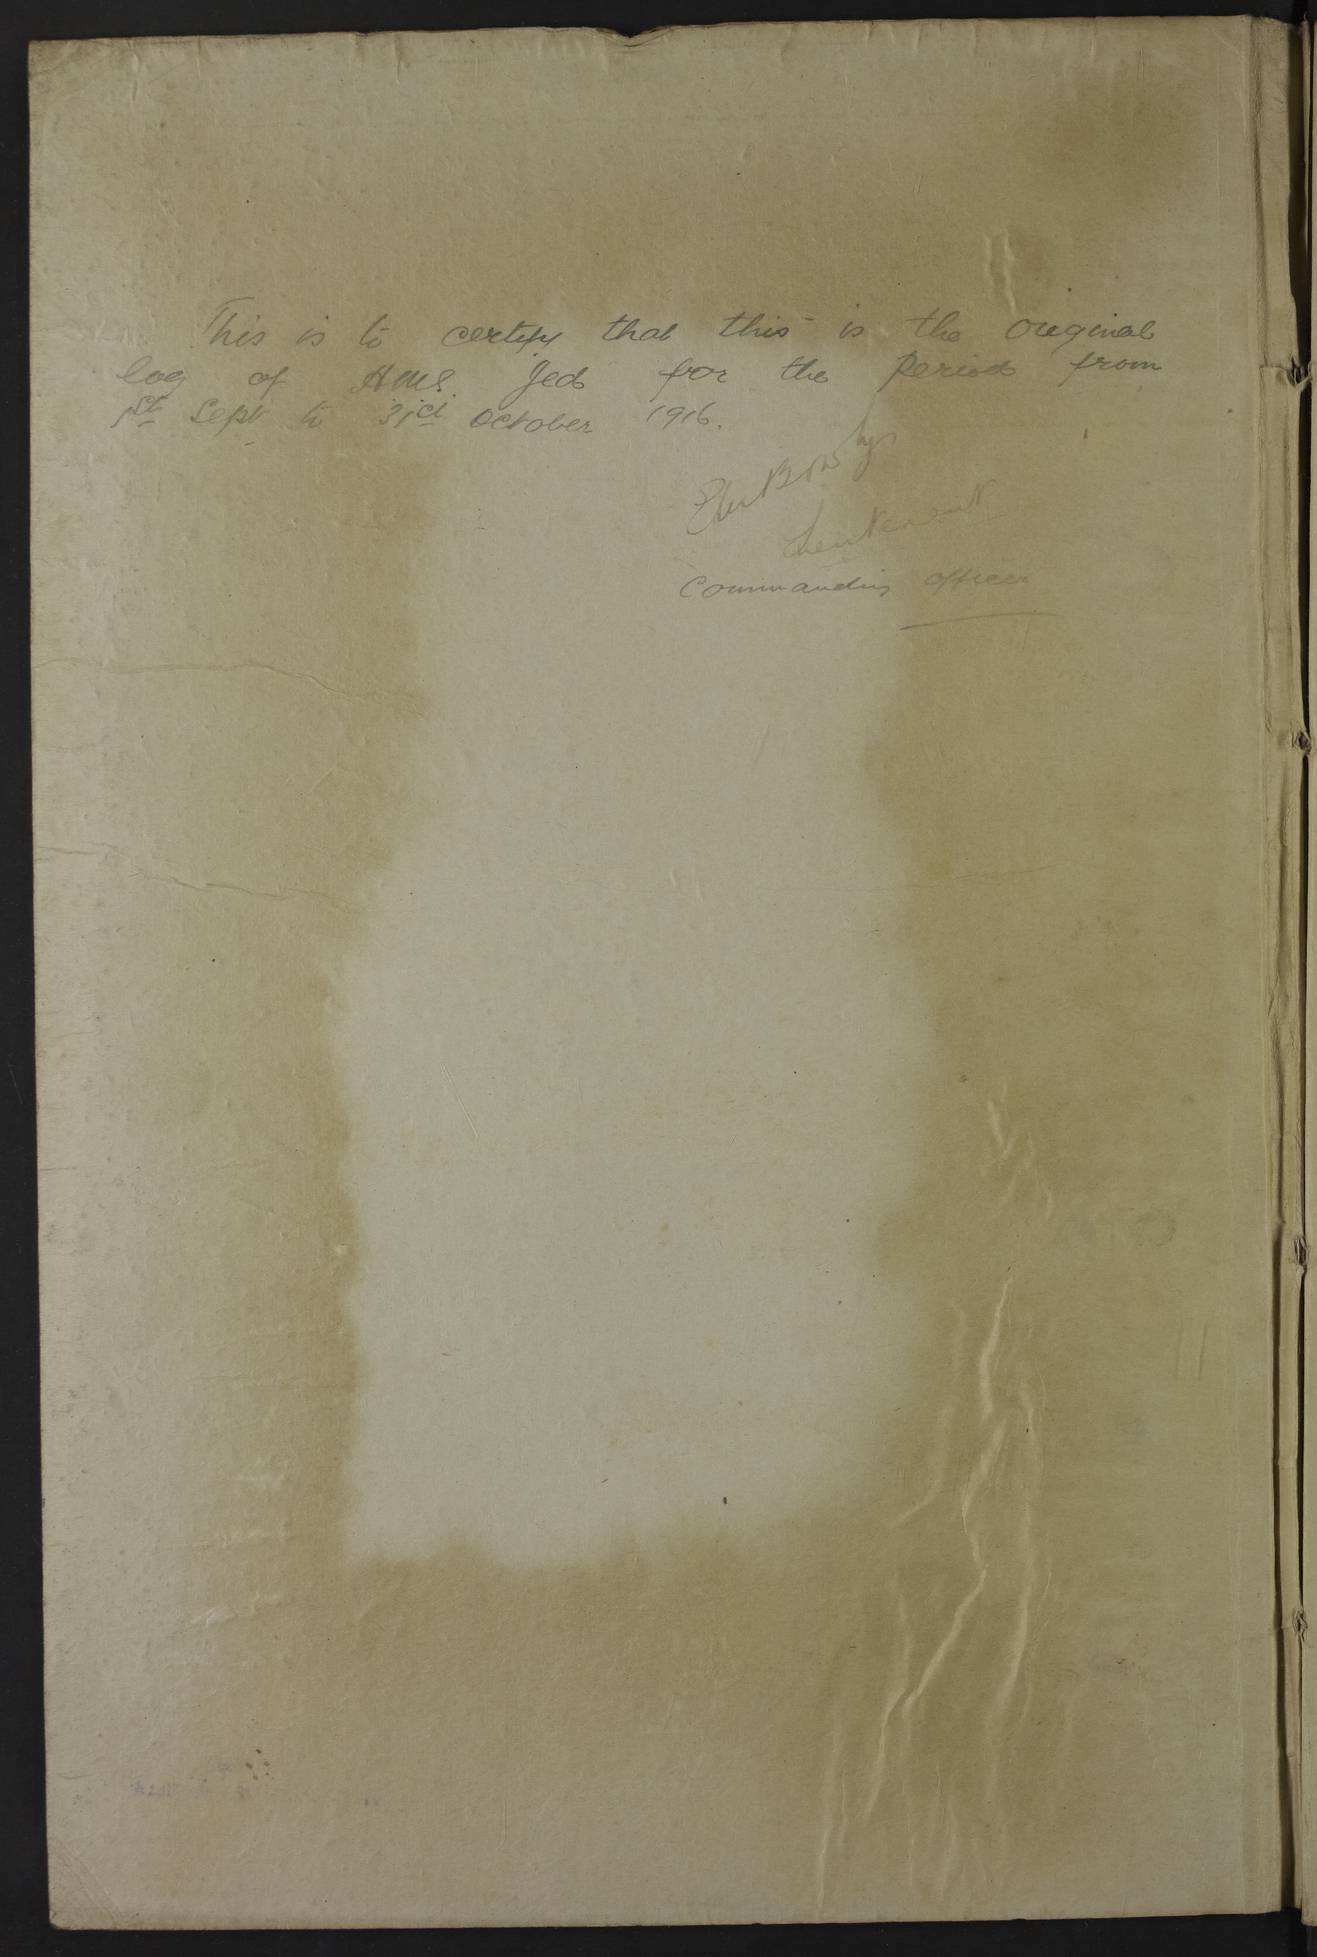 This is to certify that this is the original
log of HMS Jed for the Period from
1st Sept to 31st October 1916.
Lieutenant
Commanding officer